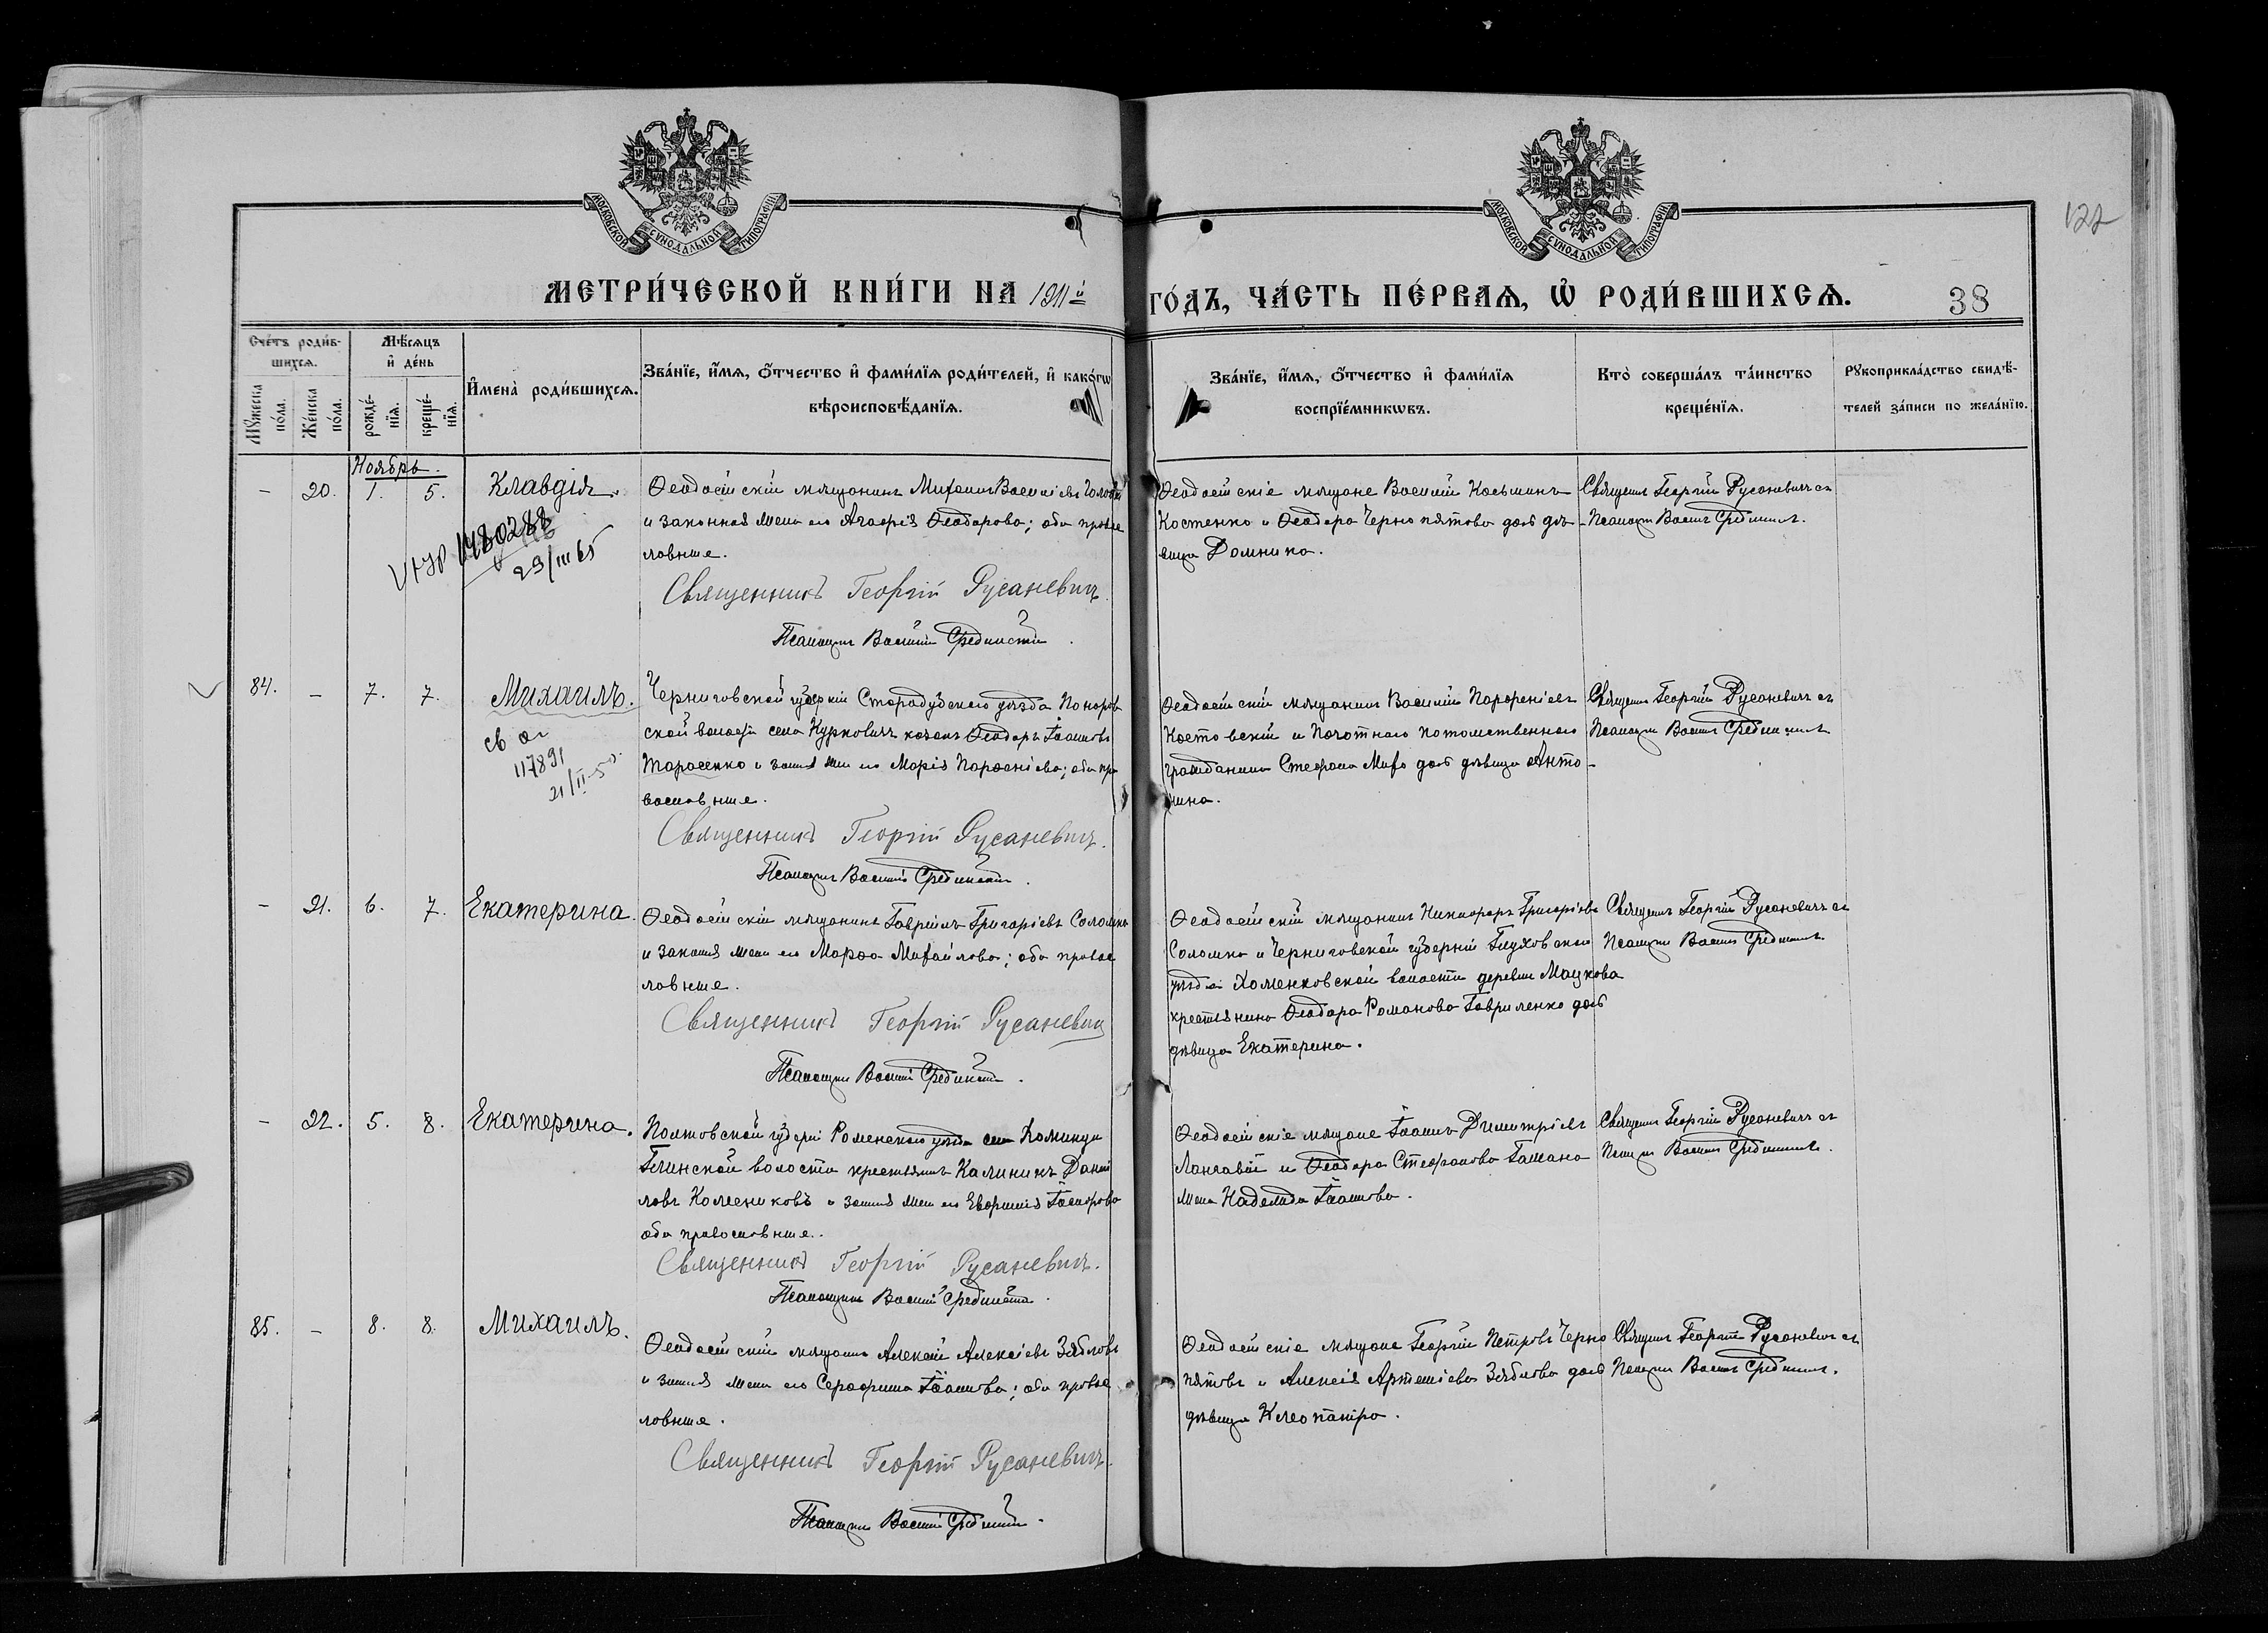 МОСКОВСКОЙ СѴНОДАЛЬНОЙ ТИПОГРАФІИ
МОСКОВСКОЙ СѴНОДАЛЬНОЙ ТИПОГРАФІИ
122
МЕТРИ́ЧЕСКОЙ КНИ́ГИ НА 1911й
ГО́ДЪ, ЧА́СТЬ ПЕ́РВАѦ, Ѡ҆ РОДИ́ВШИХСѦ.
38
Сче́тъ роди́в-
шихсѧ.
Мꙋжеска по́ла.
Же́нска по́ла.
Мѣ́сѧцъ
и҆ де́нь
рожде́-
нїѧ.
креще́-
нїѧ.
И҆мена̀ роди́вшихсѧ.
Зва́нїе, и҆́мѧ, ѻ҆́тчество и҆ фами́лїѧ роди́телей, и҆ како́гѡ
вѣроисповѣ́данїѧ.
Зва́нїе, и҆́мѧ, ѻ҆́тчество и҆ фами́лїѧ
воспрїе́мникѡвъ.
Кто̀ соверша́лъ та́инство
креще́нїѧ.
Рꙋкоприкла́дство свидѣ́-
телей за́писи по жела́нїю.
Ноябрь.
- 20. 1. 5. Клавдія.
29/III 65
Ѳеодосійскій мѣщанинъ Михаилъ Васильевъ
и законная жена его Агаѳія Ѳеодорова; оба правос
лавные.
Священникъ Георгій Русаневичъ.
Псаломщикъ Василій Срединскій.
Ѳеодосійскіе мѣщане Василій Косьминъ
Костенко и Ѳеодора Чернопятова дочь дѣ-
вица Домника.
Священ. Георгій Русаневичъ съ
Псаломщ. Васил. Срединскимъ.
84. - 7. 7. Михаилъ.
св
117891
21/II-50
Черниговской губерніи Стародубскаго уѣзда Понуров
ской волости села Курковичъ казакъ Ѳеодоръ Іоанновъ
Тарасенко и закон. жена его Марія Парѳеніева; оба пра
вославные.
Священникъ Георгій Русаневичъ.
Псаломщикъ Василій Срединскій.
Ѳеодосійскій мѣщанинъ Василій Парѳеніевъ
Костовскій и Почотнаго потомственнаго
гражданина Стефана дочь дѣвица Анто-
нина.
Священ. Георгій Русаневичъ съ
Псаломщ. Васил. Срединскимъ
- 21. 6. 7. Екатерина.
Ѳеодосійскій мѣщанинъ Гавріилъ Григоріевъ Соломко
и законная жена его Марѳа Михайлова; оба правос
лавные.
Священникъ Георгій Русаневичъ
Псаломщикъ Василій Срединскій.
Ѳеодосійскій мѣщанинъ Никифоръ Григорьевъ
Соломко и Черниговской губерніи Глуховскаго
уѣзда Хоменковской волости деревни Мацкова
крестьянина Ѳеодора Романова Гавриленко дочь
дѣвица Екатерина.
Священ. Георгій Русаневичъ съ
Псаломщ. Васил. Срединскимъ
- 22. 5. 8. Екатерина.
Полтавской губерніи Роменскаго уѣзда села
Глинской волости крестьянинъ Калиникъ Даніи
ловъ и закон. жена его Евфимія
оба православные.
Священникъ Георгій Русаневичъ.
Псаломщикъ Василій Срединскій.
Ѳеодосійскіе мѣщане Іоаннъ Димитріевъ
и Ѳеодора Стефанова
жена Надежда Іоаннова.
Священ. Георгій Русаневичъ съ
Псаломщ. Васил. Срединскимъ.
85. - 8. 8. Михаилъ.
Ѳеодосійскій мѣщанинъ Алексій Алексіевъ Зябловъ
и закон. жена его Серафима Іоаннова; оба правос
лавные.
Священникъ Георгій Русаневичъ.
Псаломщикъ Василій Срединскій.
Ѳеодосійскіе мѣщане Георгій Петровъ Черно
пятовъ и Алексія Артеміева Зяблова дочь
дѣвица Клеопатра.
Священ. Георгій Русаневичъ съ
Псаломщ. Васил. Срединским.